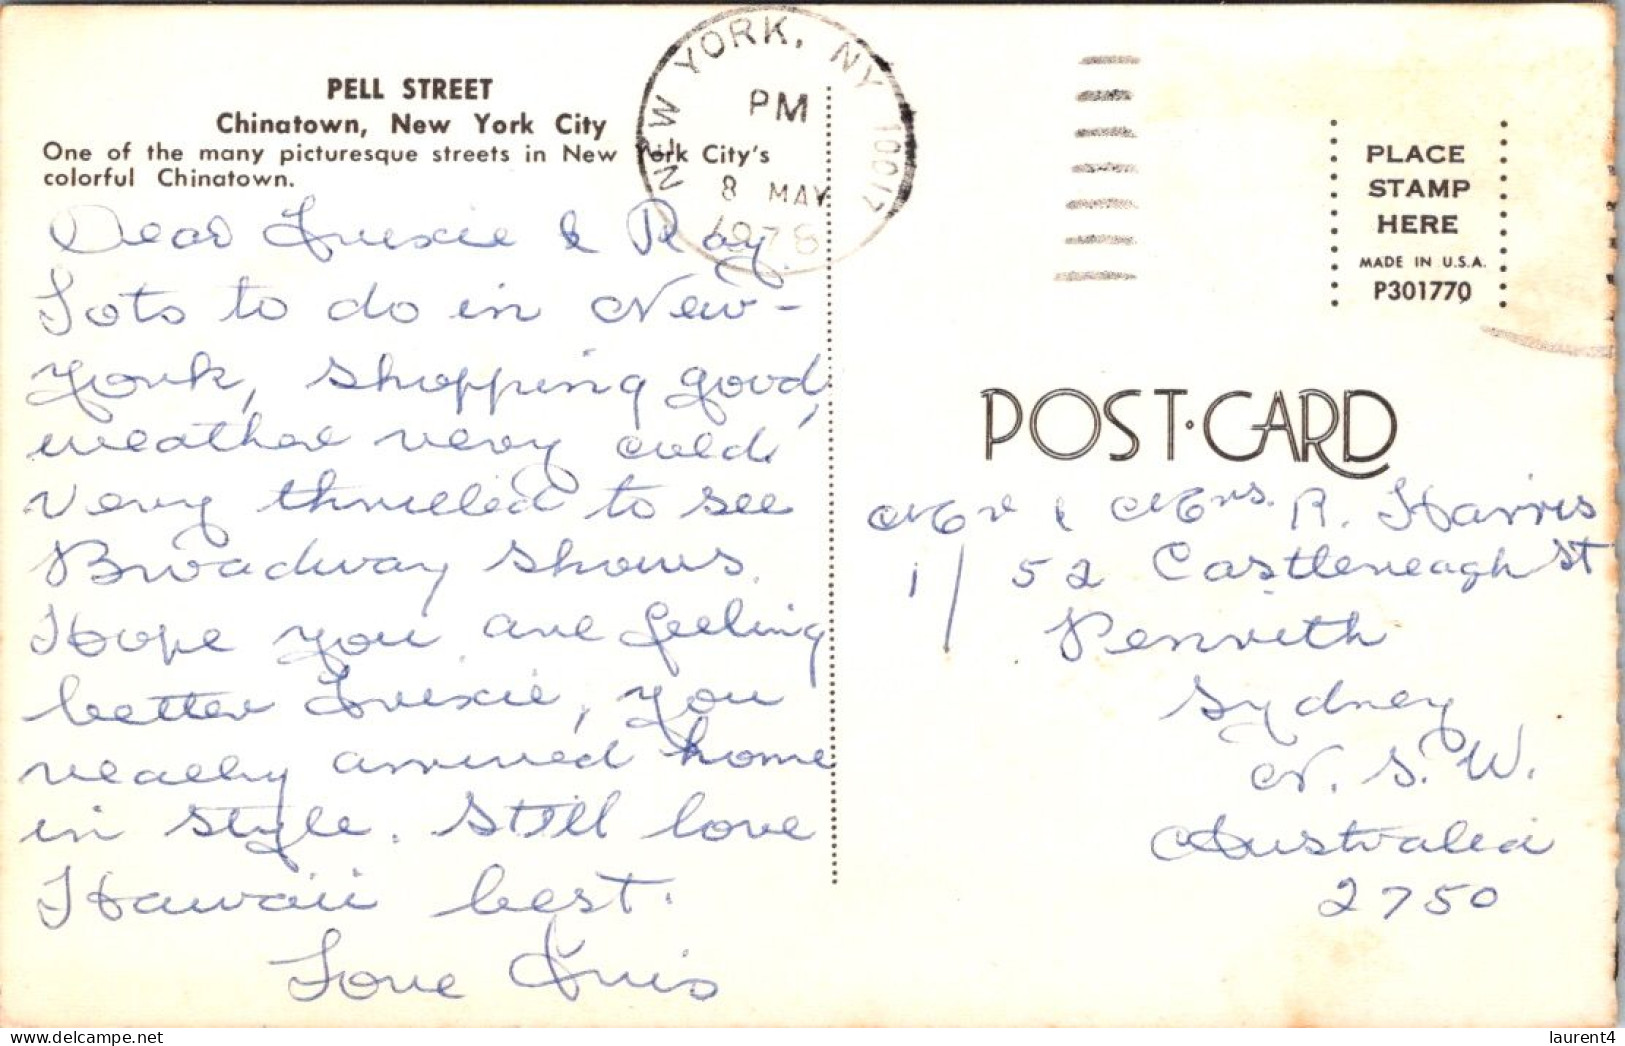 PELL STREET
Chinatown, New York City
One of the many picturesque streets in New York City's
colorful Chinatown.
NEW YORK, NY 10017
PM
8 MAY
1978
Dear Trixie & Ray.
Lots to do in New-
york, shopping good,
weather very cold.
Very thrilled to see
Broadway shows.
Hope you are feeling
better Trixie, you
really arrived home
in style. Still love
Hawaii best.
Love Iris
PLACE
STAMP
HERE
MADE IN U.S.A.
P301770
POST·CARD
Mr & Mrs. R. Harris
1/52 Castlereagh St
Penrith
Sydney
N. S. W.
Australia
2750
laurent4